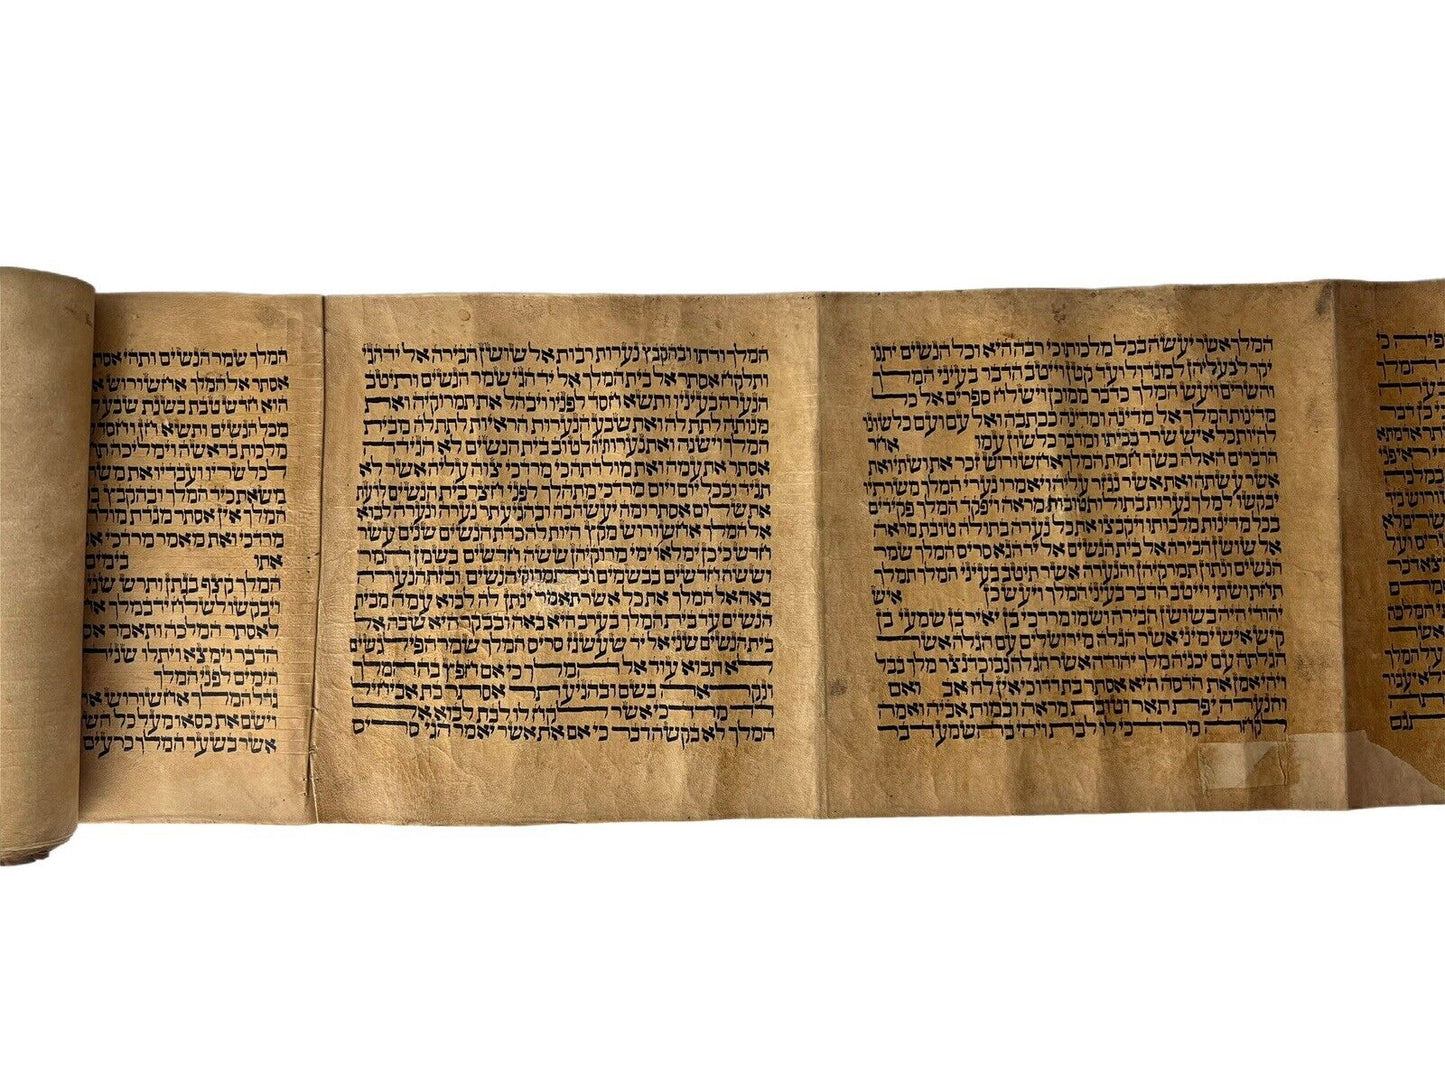 המלך אשר יעשה בכל מלכותו כי רבה היא וכל הנשים יתנו
יקר לבעליהן למגדול ועד קטן וייטב הדבר בעיני המלך
והשרים ויעש המלך כדבר ממוכן וישלח ספרים אל כל
מדינות המלך אל מדינה ומדינה ככתבה ואל עם ועם כלשונו
להיות כל איש שרר בביתו ומדבר כלשון עמו אחר
הדברים האלה כשך חמת המלך אחשורוש זכר את ושתי ואת
אשר עשתה ואת אשר נגזר עליה ויאמרו נערי המלך משרתיו
יבקשו למלך נערות בתולות טובות מראה ויפקד המלך פקידים
בכל מדינות מלכותו ויקבצו את כל נערה בתולה טובת מראה
אל שושן הבירה אל בית הנשים אל יד הגא סריס המלך שמר
הנשים ונתון תמרקיהן והנערה אשר תיטב בעיני המלך תמלך
תחת ושתי וייטב הדבר בעיני המלך ויעש כן איש
יהודי היה בשושן הבירה ושמו מרדכי בן יאיר בן שמעי בן
קיש איש ימיני אשר הגלה מירושלים עם הגלה אשר
הגלתה עם יכניה מלך יהודה אשר הגלה נבוכדנצר מלך בבל
ויהי אמן את הדסה היא אסתר בת דדו כי אין לה אב ואם
והנערה יפת תאר וטובת מראה ובמות אביה ואמה
לקחה מרדכי לו לבת ויהי בהשמע דבר
המלך ודתו ובהקבץ נערות רבות אל שושן הבירה אל יד הגי
ותלקח אסתר אל בית המלך אל יד הגי שמר הנשים ותיטב
הנערה בעיניו ותשא חסד לפניו ויבהל את תמרוקיה ואת
מנותה לתת לה ואת שבע הנערות הראיות לתת לה מבית
המלך וישנה ואת נערותיה לטוב בית הנשים לא הגידה
אסתר את עמה ואת מולדתה כי מרדכי צוה עליה אשר לא
תגיד ובכל יום ויום מרדכי מתהלך לפני חצר בית הנשים לדעת
את שלום אסתר ומה יעשה בה ובהגיע תר נערה ונערה לבוא
אל המלך אחשורוש מקץ היות לה כדת הנשים שנים עשר
חדש כי כן ימלאו ימי מרוקיהן ששה חדשים בשמן המר
וששה חדשים בבשמים ובתמרוקי הנשים ובזה הנערה
באה אל המלך את כל אשר תאמר ינתן לה לבוא עמה מבית
הנשים עד בית המלך בערב היא באה ובבקר היא שבה אל
בית הנשים שני אל יד שעשגז סריס המלך שמר הפילגשים
לא תבוא עוד אל המלך כי אם חפץ בה המלך
ונקראה בשם ובהגיע תר אסתר בת אביחיל
דד מרדכי אשר לקח לו לבת לבוא אל
המלך לא בקשה דבר כי אם את אשר יאמר הגי סריס
המלך שמר הנשים ותהי אסת
אסתר אל המלך אחשורוש
הוא חדש טבת בשנת שבע ל
מכל הנשים ותשא חן וחסד
מלכות בראשה וימליכה
לכל שריו ועבדיו את מש
משאת כיד המלך ובהקבץ ב
המלך אין אסתר מגדת מולד
מרדכי ואת מאמר מרדכי
אתו בימים
המלך קצף בגתן ותרש שני
ויבקשו לשלח יד במלך
לאסתר המלכה ותאמר אס
הדבר וימצא ויתלו שני
הימים לפני המלך
גדל המלך אחשורוש
וישם את כסאו מעל כל הש
אשר בשער המלך כרעים